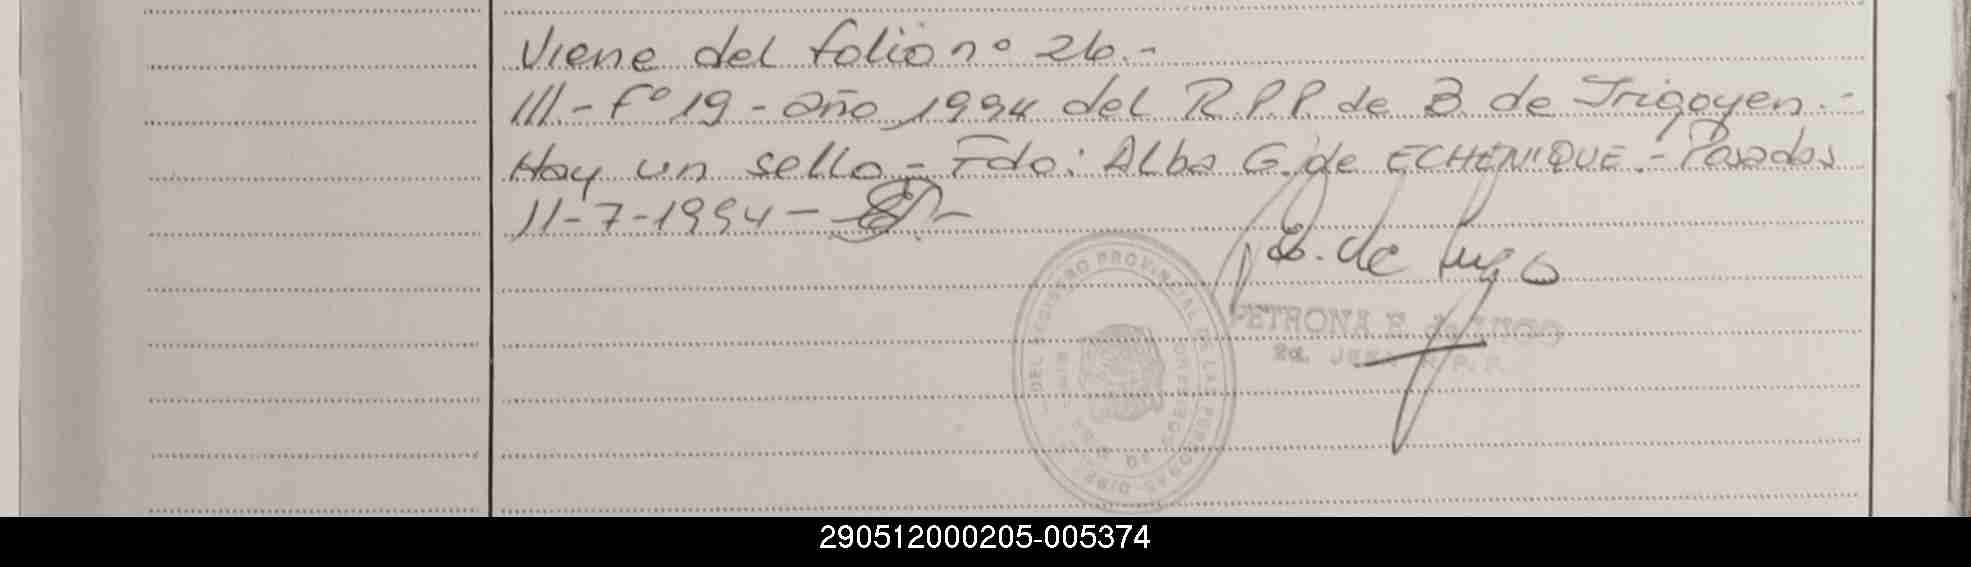 Viene del folio nº 26.-
///.- Fº 19 - año 1994 del R.P.P. de B. de Irigoyen.-
Hay un sello.- Fdo: Alba G. de ECHENIQUE.- Posadas
11-7-1994 -
de Lugo
PETRONA F. de LUGO
2a. JEFA R.P.P.
DEL REGISTRO PROVINCIAL DE LAS PERSONAS
290512000205-005374